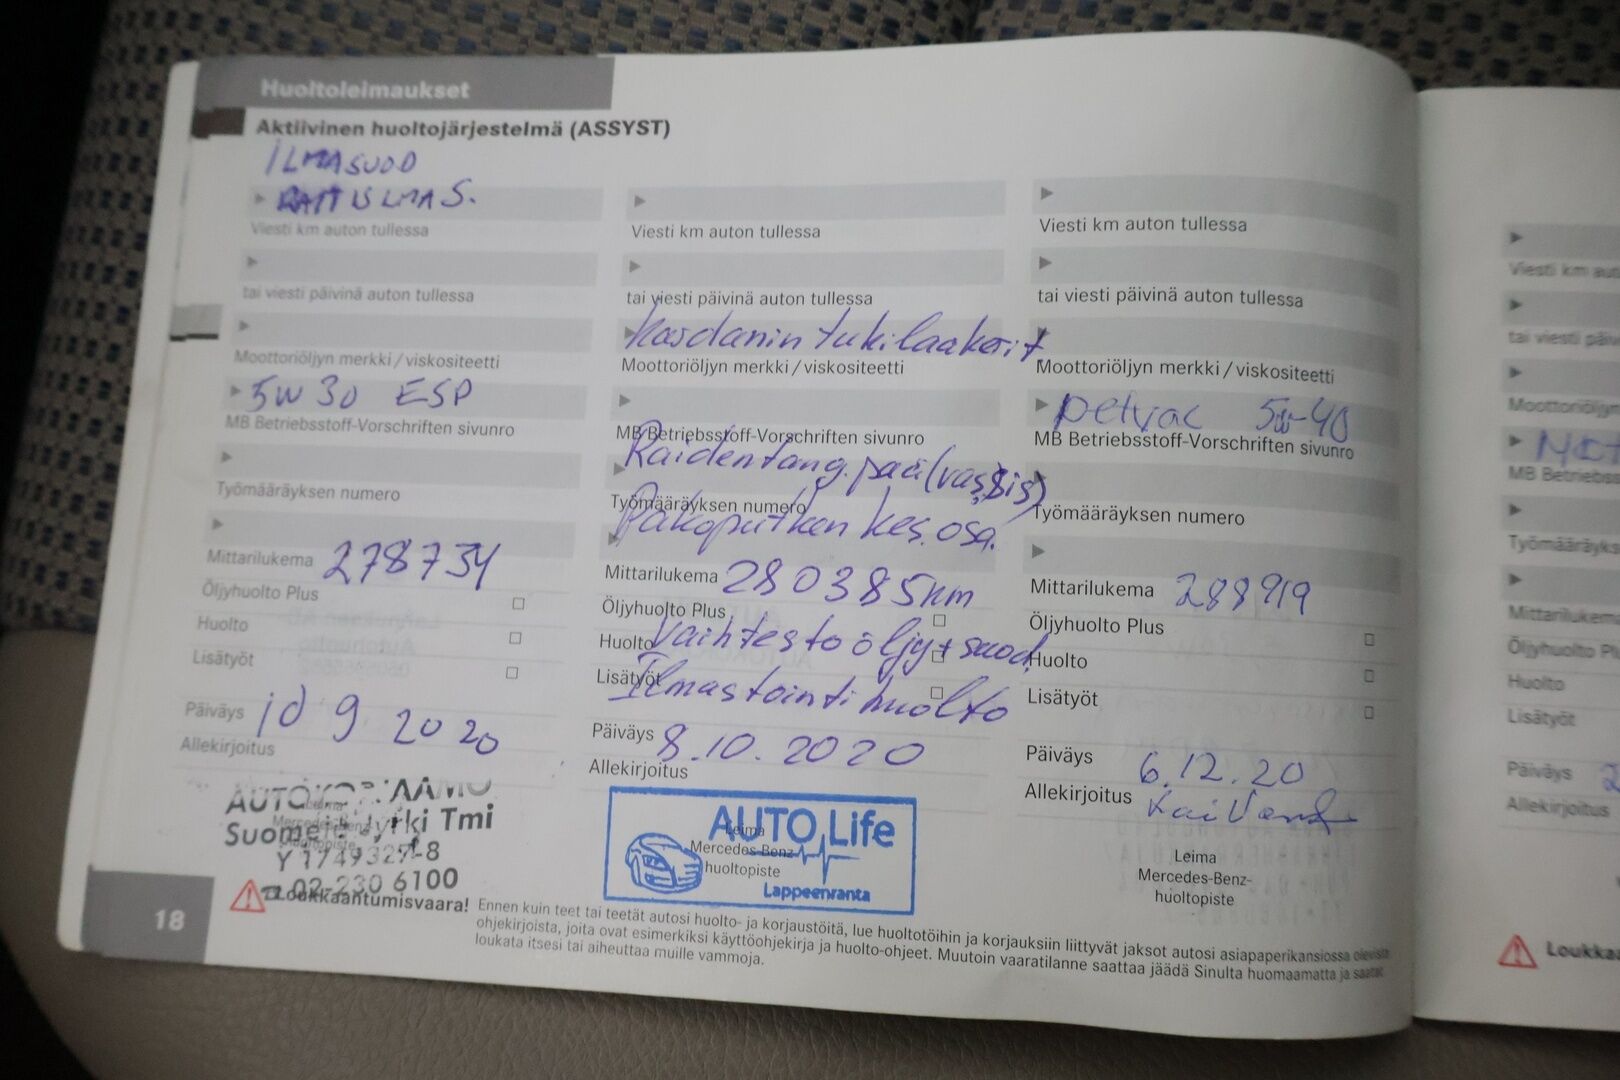 Huoltoleimaukset
Aktiivinen huoltojärjestelmä (ASSYST)
ILMASUOD
Viesti km auton tullessa
tai viesti päivinä auton tullessa
Moottoriöljyn merkki / viskositeetti
5W30 ESP
MB Betriebsstoff-Vorschriften sivunro
Työmääräyksen numero
Mittarilukema 278734
Öljyhuolto Plus
Huolto
Lisätyöt
Päiväys 10 9 2020
Allekirjoitus
AUTOKORJAAMO
Suomela Jyrki Tmi
Y 1749327-8
02-230 6100
Viesti km auton tullessa
tai viesti päivinä auton tullessa
Kardanin tukilaakerit
Moottoriöljyn merkki / viskositeetti
MB Betriebsstoff-Vorschriften sivunro
Raidentang. pää (vas,
Työmääräyksen numero
Pakoputken kes. osa.
Mittarilukema 280385km
Öljyhuolto Plus
Huolto
Vaihtestoöljyt suod.
Lisätyöt
Ilmastointihuolto
Päiväys 8.10.2020
Allekirjoitus
AUTO Life
Leima
Mercedes-Benz
huoltopiste
Lappeenranta
Viesti km auton tullessa
tai viesti päivinä auton tullessa
Moottoriöljyn merkki / viskositeetti
5w-40
MB Betriebsstoff-Vorschriften sivunro
Työmääräyksen numero
Mittarilukema 288919
Öljyhuolto Plus
Huolto
Lisätyöt
Päiväys 6.12.20
Allekirjoitus Kai
Leima
Mercedes-Benz-
huoltopiste
18
Loukkaantumisvaara! Ennen kuin teet tai teetät autosi huolto- ja korjaustöitä, lue huoltotöihin ja korjauksiin liittyvät jaksot autosi asiapaperikansiossa olevista
ohjekirjoista, joita ovat esimerkiksi käyttöohjekirja ja huolto-ohjeet. Muutoin vaaratilanne saattaa jäädä Sinulta huomaamatta ja saatat
loukata itsesi tai aiheuttaa muille vammoja.
Viesti km aut
tai viesti päiv
Moottoriöljyn
MB Betriebs
Työmääräyks
Mittarilukema
Öljyhuolto Pl
Huolto
Lisätyöt
Päiväys 2
Allekirjoitus
Loukkaa